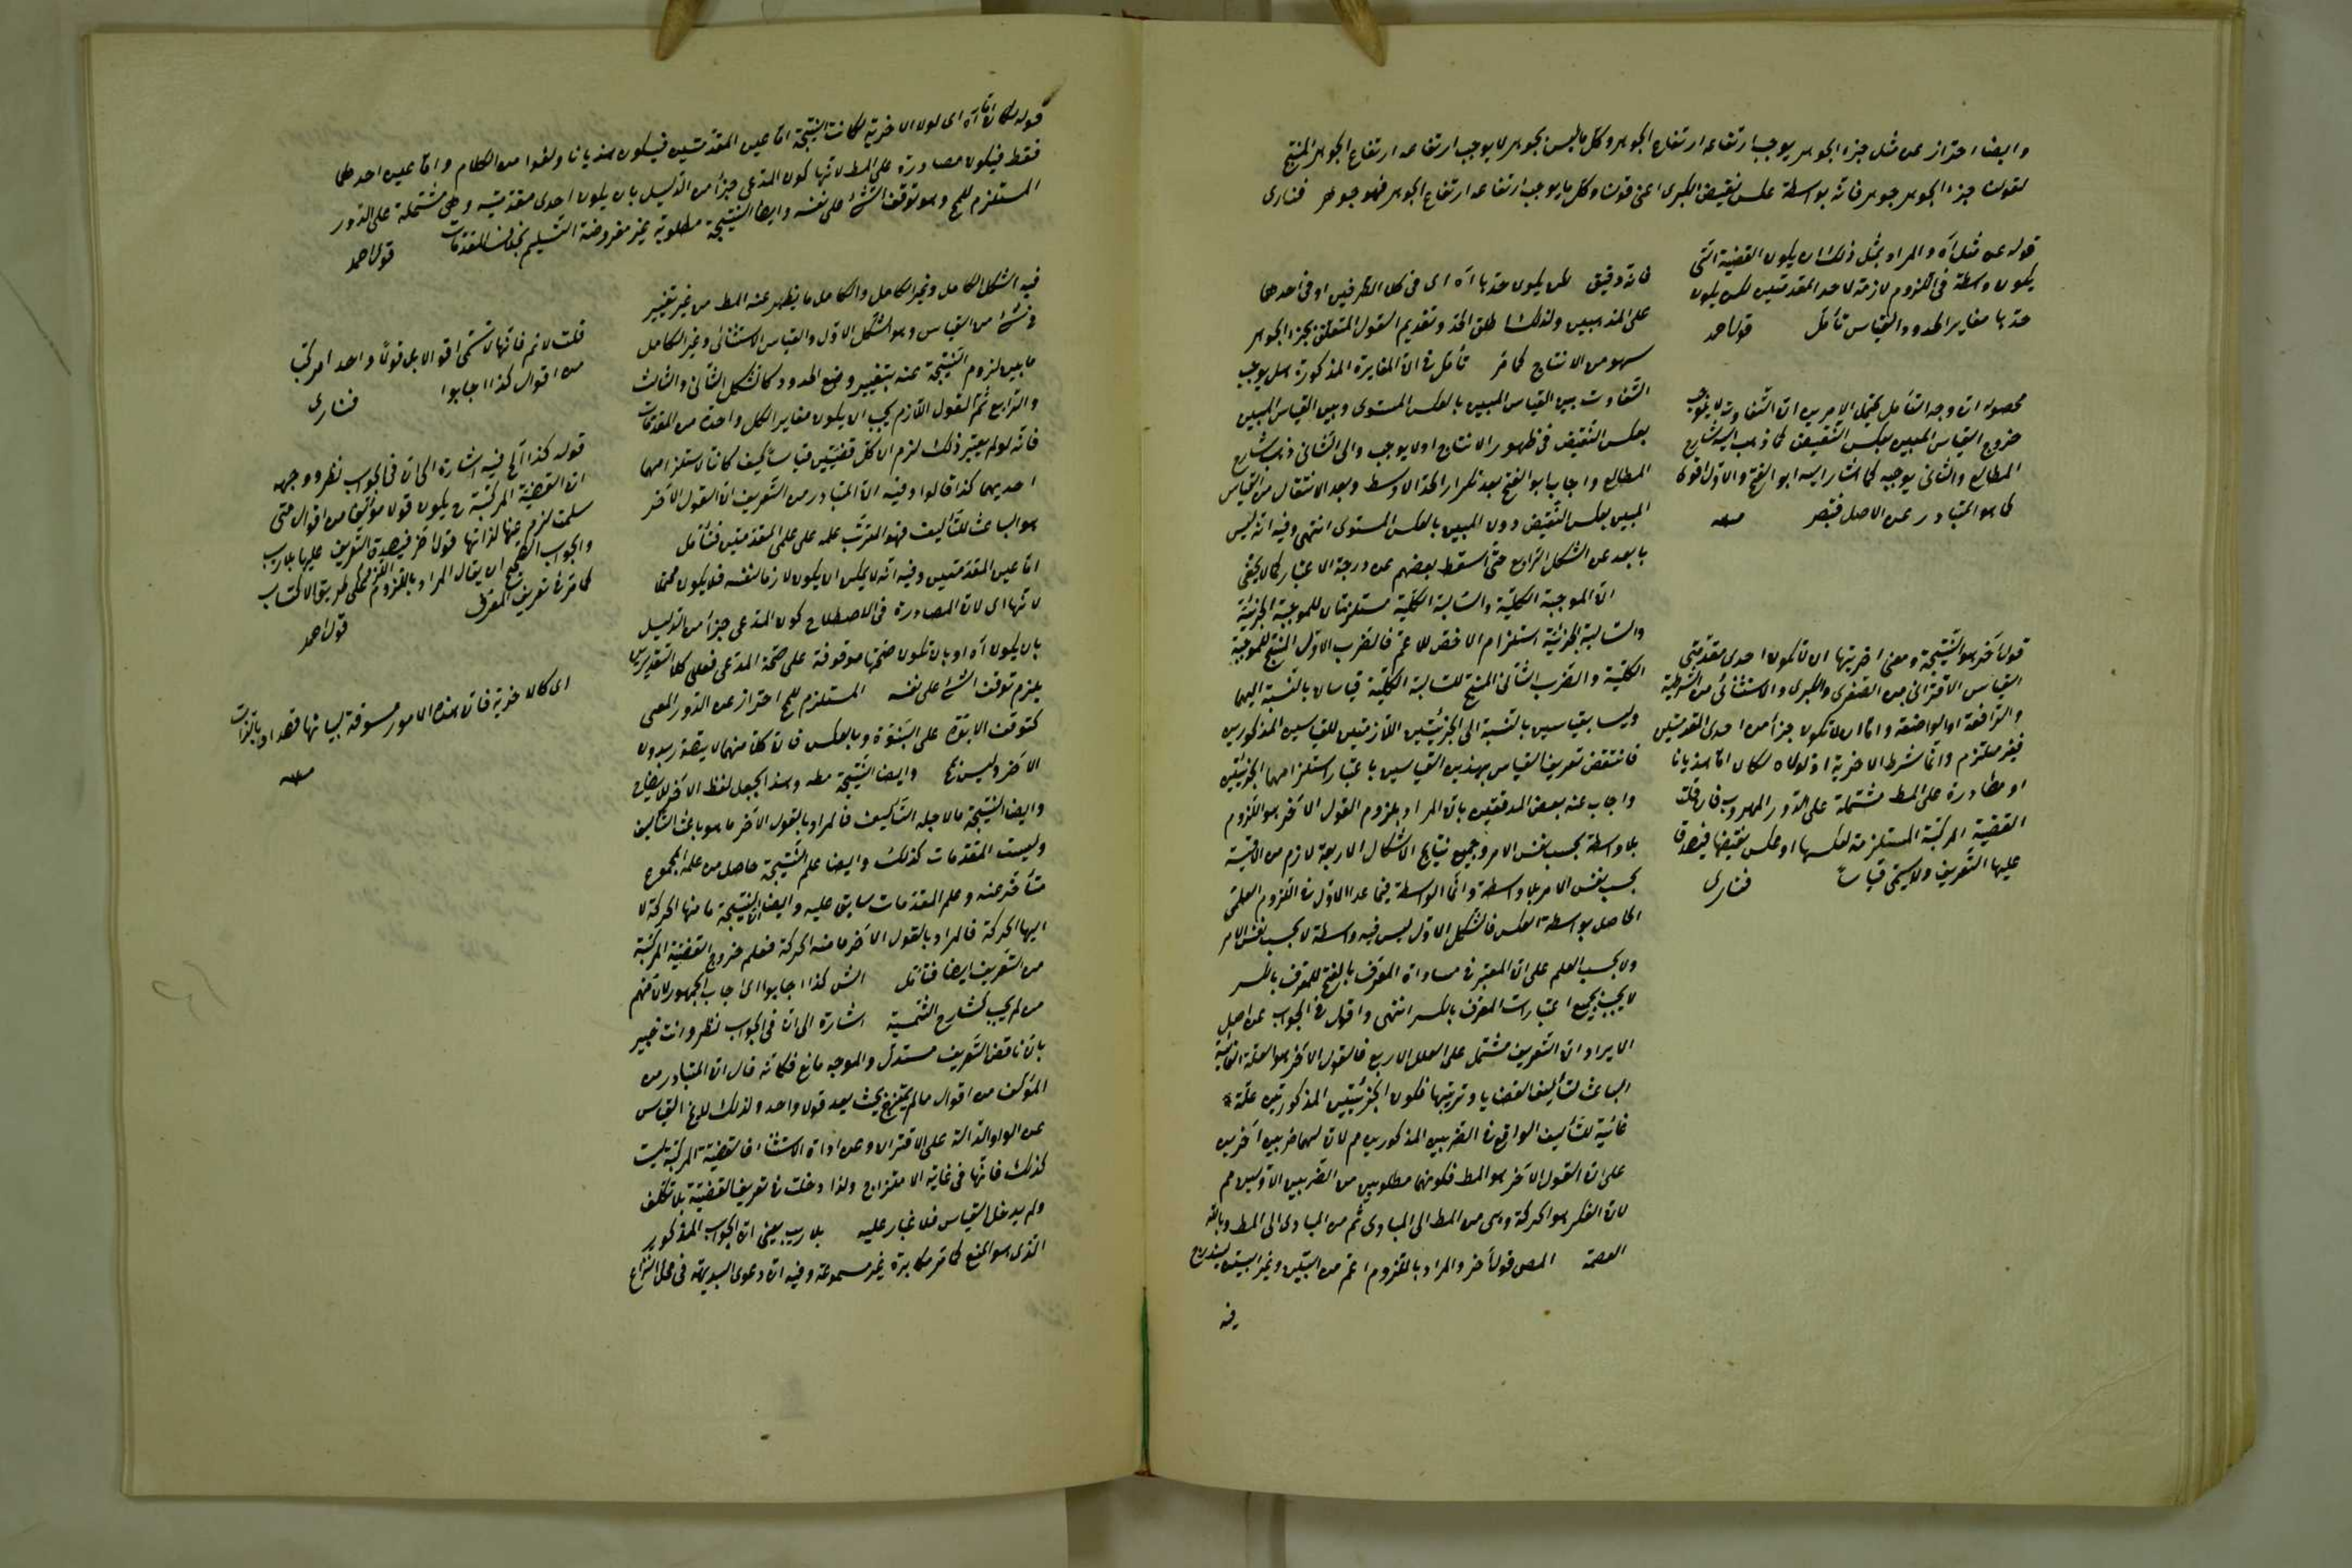 وايضا احتراز عن مثل جزء الجوهر يوجب ارتفاعه ارتفاع الجوهر وكل ما ليس بجوهر لا يوجب ارتفاعه ارتفاع الجوهر المنتج
لقولنا جزء الجوهر جوهر فانه بواسطة عكس نقيض الكبرى اعنى قولنا وكل ما يوجب ارتفاعه ارتفاع الجوهر فهو جوهر فنارى
قوله عن مثل آه والمراد بمثل ذلك ان يكون القضية التى
يكون واسطة فى اللزوم لازمة لاحد المقدمتين لكن يكون
حدها مغاير الحدود القياس تأمل قول احمد
محصوله ان وجه التأمل يحتمل الامرين ان التفاوت لا يوجب
خروج القياس المبين بعكس النقيض كما ذهب اليه شارح
المطالع والثانى يوجبه كما اشار اليه ابو الفتح والاول اقوى
كما هو المتبادر عن الاصل فتبصر منه
قول آخر هو النتيجة ومعنى اخريتها ان لا تكون احدى مقدمتى
القياس الاقترانى من الصغرى والكبرى والاستثنائى من الشرطية
والرافعة او الواضعة واما ان لا تكون جزأ من احدى المقدمتين
فغير ملتزم وانما شرط الاخرية اذ لولاه لكان اما هذيانا
او مصادرة على المط مشتملة على الدور المهروب فان قلت
القضية المركبة المستلزمة لعكسها او عكس نقيضها فيصدق
عليها التعريف ولا يسمى قياسا فنارى
فانه دقيق لكن يكون حدها آه اى فى كلا الطرفين او فى احدهما
على المذهبين ولذلك اطلق الحد وتقديم القول المتعلق بجزء الجوهر
سهو من الانتاج كما مر تأمل فى ان المغايرة المذكورة هل يوجب
التفاوت بين القياس المبين بالعكس المستوى وبين القياس المبين
بعكس النقيض فى ظهور الانتاج او لا يوجب والى الثانى ذهب شارح
المطالع واجاب ابو الفتح بعد تكرار الحد الاوسط وبعد الانتقال من القياس
المبين بعكس النقيض دون المبين بالعكس المستوى انتهى وفيه انه ليس
بابعد عن الشكل الرابع حتى اسقط بعضهم عن درجة الاعتبار كما لا يخفى
ان الموجبة الكلية والسالبة الكلية مستلزمتان للموجبة الجزئية
والسالبة الجزئية استلزام الاخص للاعم فالضرب الاول المنتج للموجبة
الكلية والضرب الثانى المنتج للسالبة الكلية قياسان بالنسبة اليهما
وليسا بقياسين بالنسبة الى الجزئيتين اللازمتين للقياسين المذكورين
فانتقض تعريف القياس بهذين القياسين باعتبار استلزامهما الجزئيتين
واجاب عنه بعض المدققين بان المراد بلزوم القول الآخر هو اللزوم
بلا واسطة بحسب نفس الامر وجميع نتايج الاشكال الاربعة لازم من الاقيسة
بحسب نفس الامر بلا واسطة وانما الواسطة فيما عدا الاول فى اللزوم العلمى
الحاصل بواسطة العكس فالشكل الاول ليس فيه واسطة لا بحسب نفس الامر
ولا بحسب العلم على ان المعتبر فى مساواة المعرف بالفتح للمعرف بالكسر
لا يجب بجميع اعتبارات المعرف بالكسر انتهى واقول فى الجواب عن اصل
الايراد ان التعريف مشتمل على العلل الاربع فالقول الآخر هو العلة الغائية
الباعث لتأليف القضايا وترتيبها فكون الجزئيتين المذكورتين علة
غائية لتأليف الواقع فى الضربين المذكورين مم لان لهما ضربين آخرين
على ان القول الآخر هو المط فكونهما مطلوبين من الضربين الاولين مم
لان الفكر هو الحركة وهى من المط الى المبادى ثم من المبادى الى المط وبالله
العصمة المص قول آخر والمراد باللزوم اعم من البين وغير البين ليندرج
فيه
قوله لكان اما آه اى لولا الاخرية لكانت النتيجة اما عين المقدمتين فيكون هذيانا ولغوا من الكلام واما عين احدهما
فقط فيكون مصادرة على المط لانها كون المدعى جزأ من الدليل بان يكون احدى مقدمتيه وهى مشتملة على الدور
المستلزم للمح وهو توقف الشئ على نفسه وايضا النتيجة مطلوبة غير مفروضة التسليم بخلاف المقدمات قول احمد
فيه الشكل الكامل وغير الكامل والكامل ما يظهر عنه المط من غير تغيير
فى شئ من القياس وهو الشكل الاول والقياس الاستثنائى وغير الكامل
ما يبين لزوم النتيجة عنه بتغيير وضع الحدود كالشكل الثانى والثالث
والرابع ثم القول اللازم يجب ان يكون مغايرا لكل واحدة من المقدمات
فانه لو لم يعتبر ذلك لزم ان كل قضيتين قياسا كيف كانتا لاستلزامهما
احديهما كذا قالوا وفيه ان المتبادر من التعريف ان القول الآخر
هو الباعث للتأليف فهو المترتب علمه على علمى المقدمتين فتأمل
اما عين المقدمتين وفيه انه لا يمكن ان يكون لازما لنفسه فلا يكون محققا
لانها اى لان المصادرة فى الاصطلاح كون المدعى جزأ من الدليل
بان يكون آه او بان تكون صحتها موقوفة على صحة المدعى فعلى كلا التقديرين
يلزم توقف الشئ على نفسه المستلزم للمح احتراز عن الدور المعى
كتوقف الابوة على البنوة وبالعكس فان كلا منهما لا يتصور بدون
الآخر وليس بمح وايضا النتيجة مط وهذا يجعل لفظ الآخر للايضاح
وايضا النتيجة ما لاجله التأليف فالمراد بالقول الآخر ما هو باعث التأليف
وليست المقدمات كذلك وايضا علم النتيجة حاصل من علم المجموع
متأخر عنه وعلم المقدمات سابق عليه وايضا النتيجة ما منها الحركة لا
اليها الحركة فالمراد بالقول الآخر ما منه الحركة فعلم خروج القضية المركبة
من التعريف ايضا فتأمل الش كذا اجابوا اى اجاب الجمهور لان منهم
من لم يجب كشارح الشمسية اشارة الى ان فى الجواب نظر وانت خبير
بان ناقض التعريف مستدل والموجه مانع فكانه قال ان المتبادر من
المؤلف من اقوال ما لم يمتزج بحيث يعد قولا واحدا ولذلك للغ القياس
عن الواو الدالة على الاقتران وعن اداة الاستثناء فالقضية المركبة ليست
كذلك فانها فى غاية الامتزاج ولذا دخلت فى تعريف القضية بلا تكلف
ولم يدخل القياس فلا غبار عليه بلا ريب يعنى ان الجواب المذكور
الذى هو المنع كما مر مكابرة غير مسموعة وفيه ان دعوى البديهة فى محل النزاع
قلت لا نم فانها لا تسمى اقوالا بل قولا واحدا مركبا
من اقوال كذا اجابوا فنارى
قوله كذا الخ فيه اشارة الى ان فى الجواب نظر ووجهه
ان القضية المركبة ح يكون قولا مؤلفا من اقوال متى
سلمت لزم عنها لذاتها قول آخر فيصدق التعريف عليها بلا ريب
والجواب الصحيح ان يقال المراد باللزوم اللزوم على طريق الاكتساب
كما مر فى تعريف المعرف قول احمد
اى كالاخرية فان هذه الامور مسوقة لبيانها قصدا وبالذات
منه